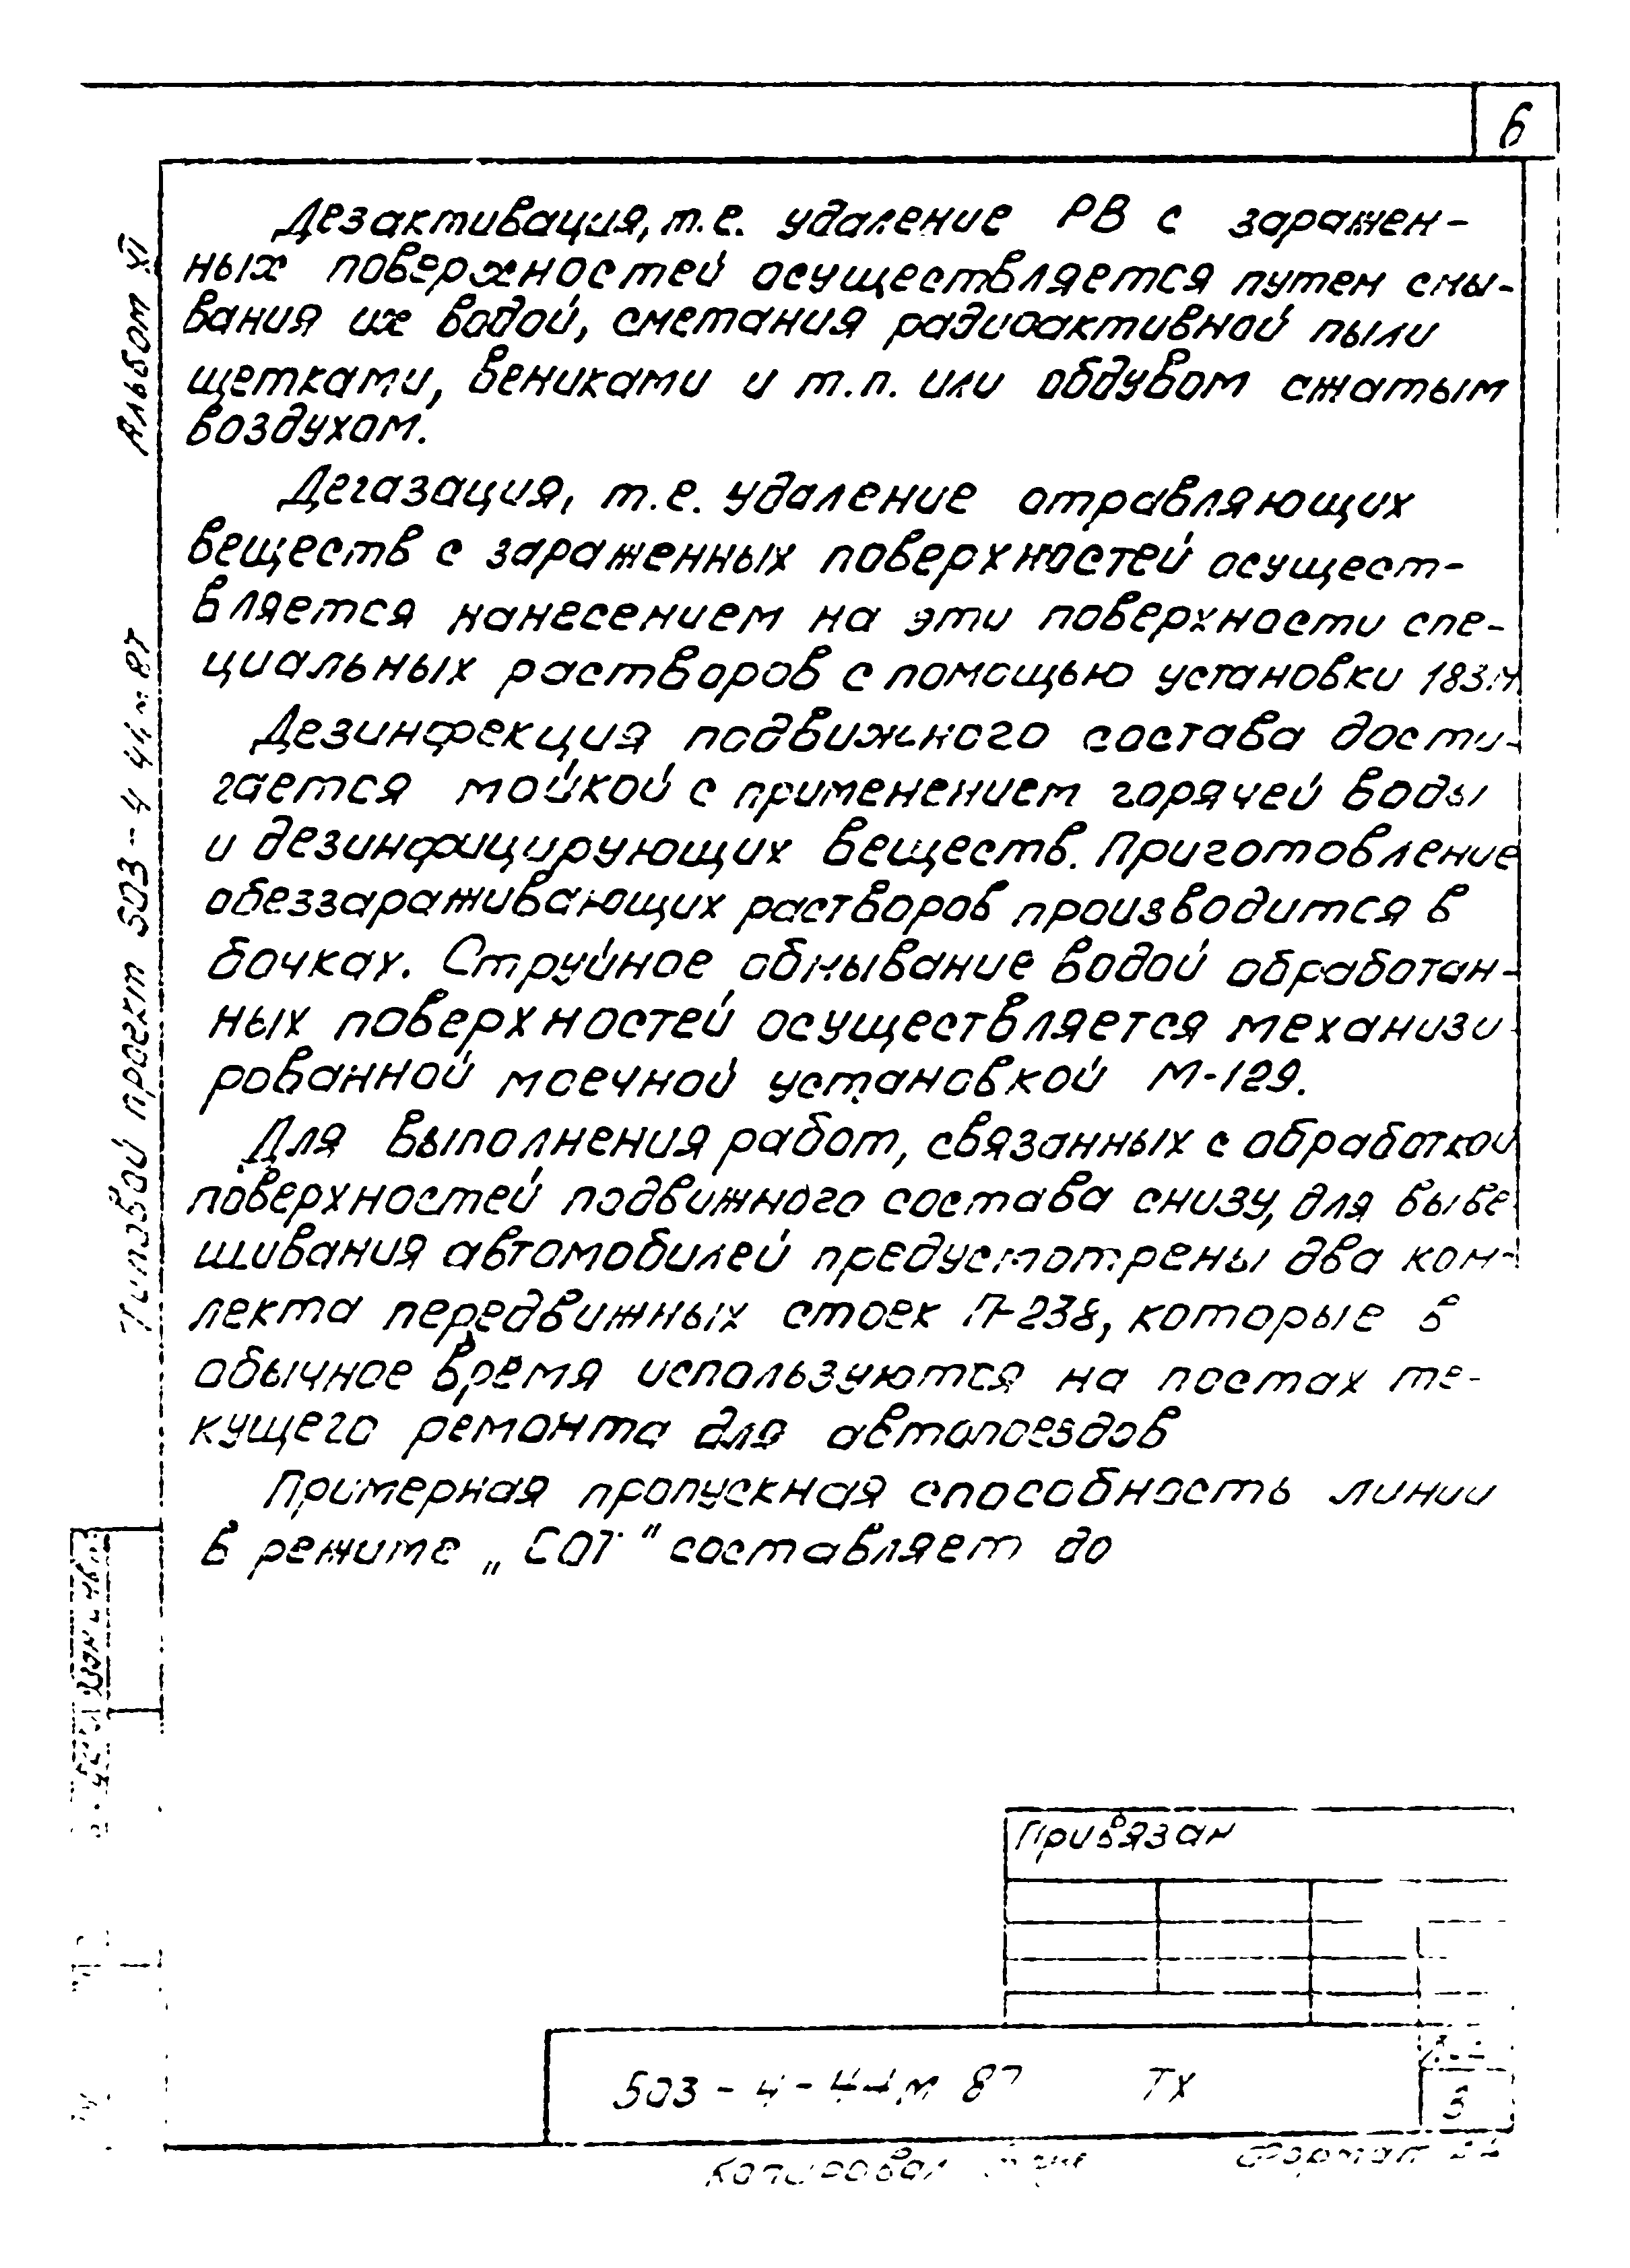 6
Дезактивация, т.е. удаление РВ с заражен-
ных поверхностей осуществляется путем смы-
вания их водой, сметания радиоактивной пыли
щетками, вениками и т.п. или обдувом сжатым
воздухом.
Дегазация, т.е. удаление отравляющих
веществ с зараженных поверхностей осущест-
вляется нанесением на эти поверхности спе-
циальных растворов с помощью установки 183М
Дезинфекция подвижного состава дости-
гается мойкой с применением горячей воды
и дезинфицирующих веществ. Приготовление
обеззараживающих растворов производится в
бочках. Струйное обмывание водой обработан-
ных поверхностей осуществляется механизи-
рованной моечной установкой М-129.
Для выполнения работ, связанных с обработкой
поверхностей подвижного состава снизу, для выве-
шивания автомобилей предусмотрены два ком-
лекта передвижных стоек П-238, которые в
обычное время используются на постах те-
кущего ремонта для автопоездов
Примерная пропускная способность линии
в режиме „СОТ" составляет до
Альбом XI
Типовой проект 503-4-44м 87
Привязан
503-4-44м 87 ТХ
3
Копировал
Формат